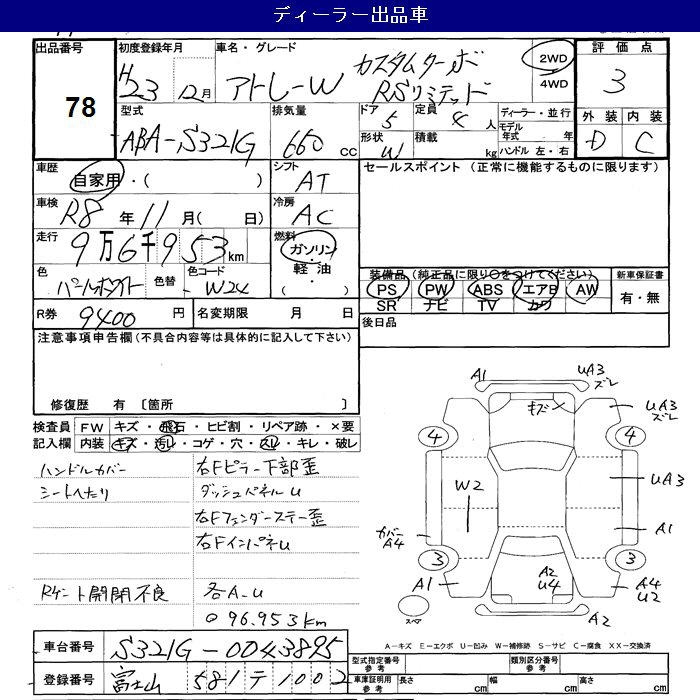 ディーラー出品車
出品番号 初度登録年月 車名・グレード 評価点
78 H23 12月 アトレーW カスタムターボ RSリミテッド 2WD 4WD 3
型式 排気量 ドア 定員 ディーラー・並行 外装 内装
ABA-S321G 660 cc 5 4人 モデル年式 年 D C
形状 積載 W kg ハンドル 左・右
車歴 自家用・( ) シフト AT セールスポイント (正常に機能するものに限ります)
車検 R8年11月( 日) 冷房 AC
走行 9万6千953km 燃料 ガソリン・軽油・( )
色 パールホワイト 色替 色コード W24 装備品 (純正品に限り○をつけてください) 新車保証書
PS PW ABS エアB AW 有・無
SR ナビ TV カワ
R券 9400円 名変期限 月 日 後日品
注意事項申告欄(不具合内容等は具体的に記入して下さい)
修復歴 有 〔箇所 〕
検査員記入欄 FW キズ・飛石・ヒビ割・リペア跡・×要
内装 キズ・汚レ・コゲ・穴・スレ・キレ・破レ
ハンドルカバー 右Fピラー下部歪
シートヘたり ダッシュパネルu
右Fフェンダーステー歪
右FインパネU
Rゲート開閉不良 各A-u
○96.953km
A1 UA3 ズレ
キズ UA3 ズレ
4 4
W2 UA3
カバーA4 A1
3 3
A1 A2 U4 A4 U2
スペア A2
A-キズ E-エクボ U-凹み W-補修跡 S-サビ C-腐食 XX-交換済
車台番号 S321G-0043895 型式指定番号 参考 類別区分番号 参考
登録番号 富士山 581 テ 1002 車庫証明用 参考 長さ cm 幅 cm 高さ cm